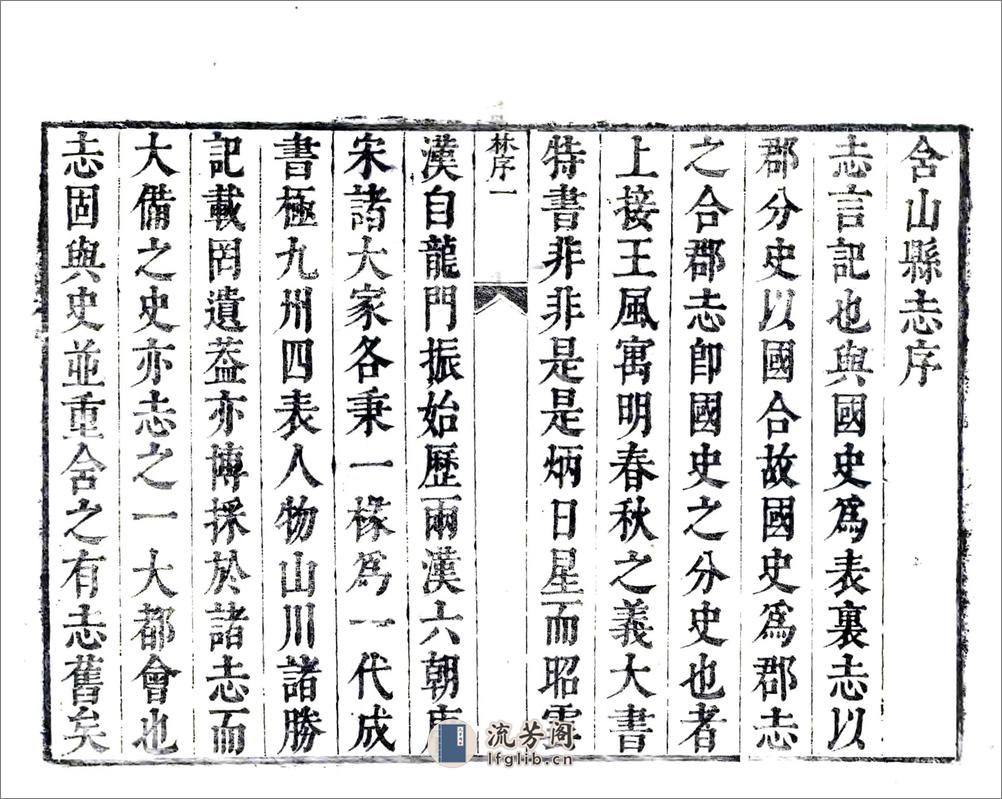 含山縣志序
志言記也與國史爲表裏志以
郡分史以國合故國史爲郡志
之合郡志卽國史之分史也者
上接王風寓明春秋之義大書
特書非非是是炳日星而昭雲
林序一
漢自龍門振始歷兩漢六朝唐
宋諸大家各秉一椽爲一代成
書極九州四表人物山川諸勝
記載罔遺葢亦博採於諸志而
大備之史亦志之一大都會也
志固與史並重含之有志舊矣
流芳阁
lfglib.cn